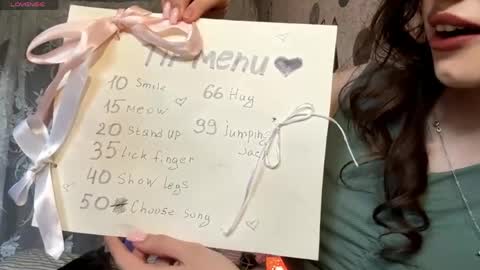 LOVENSE
Tip Menu
10 Smile
15 Meow
20 Stand up
35 Lick finger
40 Show legs
50 Choose song
66 Hug
99 jumping
Jack